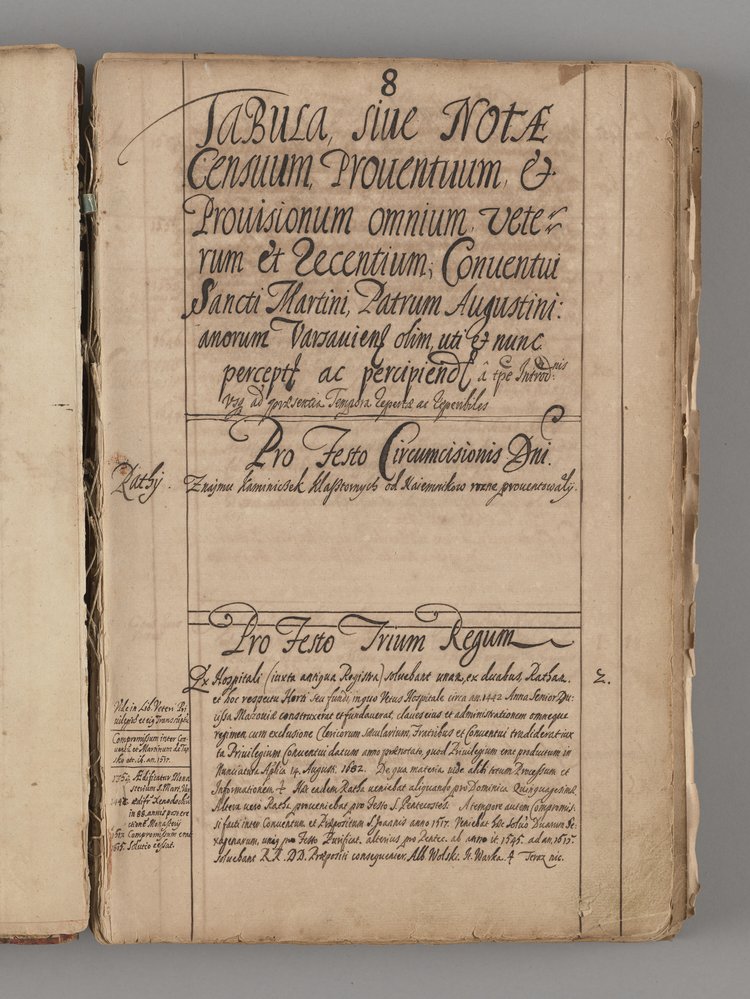 8
TaBula, siue NOTÆ
Censuum, Prouentuum, &
Prouisionum omnium, vete⸗
rum et Recentium, Conuentui
Sancti Martini, Patrum Augustini:
anorum Varsauiens olim, uti & nunc
percept ac percipiend â tpe Introd:nis
Vsq ad præsentia Tempora Repertæ ac Reperibiles
Pro Festo Circumcisionis Dni.
Rathy.
Znaymu Kaminiczek Klasztornych od Naiemnikow rozne prouentowaly.
Pro Festo Trium Regum
Ex Hospitali (iuxta antiqua Registra) soluebant unam, ex duabus, Ratham.
2.
et hoc respectu Horti seu fundi, in quo Vetus Hospitale circa an. 1442 Anna Senior Du:
cissa Mazouiæ construxerat et fundauerat, claues eius et administrationem omneque
regimen, cum exclusione Clericorum sæcularium, Fratribus et Conuentui tradiderat iux
ta Priuilegium Conuentui datum anno prænotato, quod Priuilegium erat productum in
Nunciatura Aplica 14. August. 1682. De qua materia uide alibi totum Processum et
Informationem. Hæc eadem Ratha ueniebat aliquando pro Dominica Quinquagesimæ
Altera uero Ratha proueniebat pro Festo S. Pentecostes. A tempore autem Compromis:
si facti inter Conuentum et Præpositum S. Joannis anno 1517. Veniebat hæc solutio Duarum Se:
xagenarum, unius pro Festo Purificat. alterius pro Pentec. ab anno et 1545. ad an. 1615.
Soluebant R.R. DD. Præpositi consequenter, Alb Wolski. G. Warka. Teraz nic.
Vide in Lib Veteri Pri
uilegiū et eig Transcriptū
Compromissum inter Con
uentū et Martinum de
etc. sub an. 1517.
Ædificatur Mona
sterium S. Mart.
1442 ædifi: Xenodochiū
in 88 annis post ere
ctionē Monasterij
1517 Compromissum erat
1615. Solutio cessat.